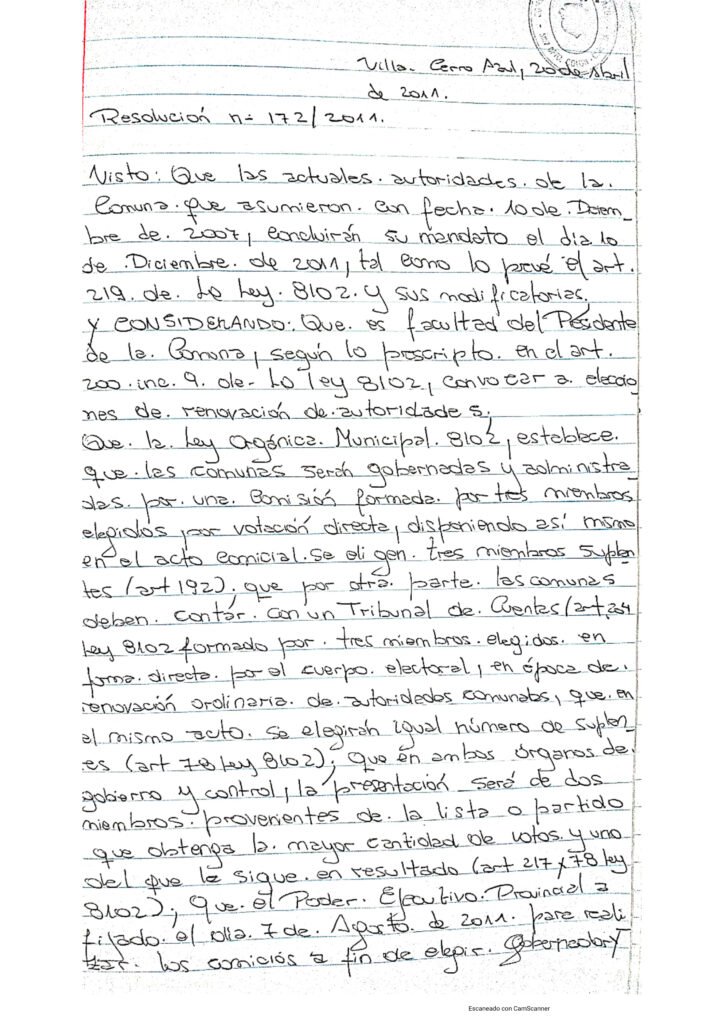 Villa. Cerro Azul, 20 de Abril
de 2011.
Resolución n- 172/2011.
Visto: Que las actuales. autoridades. de la.
Comuna. que asumieron. con fecha. 10 de. Diciem_
bre de. 2007, concluirán su mandato el día 10
de .Diciembre. de 2011, tal como lo prevé el art.
219. de. La Ley. 8102. y sus modificatorias.
Y CONSIDERANDO: Que. es facultad del Presidente
de la. Comuna, según lo prescripto. en el art.
200. inc. 9. de- La ley 8102, convocar a. eleccio_
nes de. renovación de. autoridades.
Que. la. Ley Orgánica. Municipal. 8102, establece.
que. las comunas serán gobernadas y administra
das. por. una. Comisión formada. por tres miembros
elegidos por votación directa, disponiendo así mismo
en el acto comicial. se eligen. tres miembros suplen_
tes (art 192); que por otra. parte. las comunas
deben. contar. con un Tribunal de. Cuentas (art, 204
Ley 8102 formado por. tres miembros. elegidos. en
forma. directa. por el cuerpo. electoral, en época de.
renovación ordinaria. de. autoridades comunales, que. en
el mismo acto. se elegirán igual número de suplen_
es (art 78 Ley 8102); que en ambos órganos de.
gobierno y control, la presentación será de dos
miembros. provenientes de. la lista o partido
que obtenga la. mayor cantidad de votos. y uno
del que le sigue. en resultado (art 217 y 78 ley
8102); que. el Poder. Ejecutivo. Provincial a
fijado. el día. 7 de. Agosto. de 2011. para reali
zar. los comicios a fin de elegir. Gobernador y
Escaneado con CamScanner